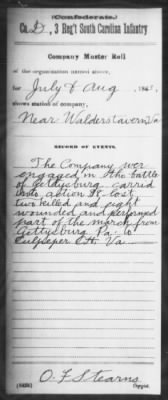 (Confederate.)
Co. D, 3 Reg't South Carolina Infantry
Company Muster Roll
of the organization named above,
for July & Aug, 1863.
shows station of company,
Near Walders tavern Va
RECORD OF EVENTS.
The Company wer
engaged in the battle
of Getdysburg carrid
into action 38 lost
two killed and eight
wounded and performed
part of the march from
Gettysburg Pa. to
Culpeper C.H. Va.
O. F. Stearns